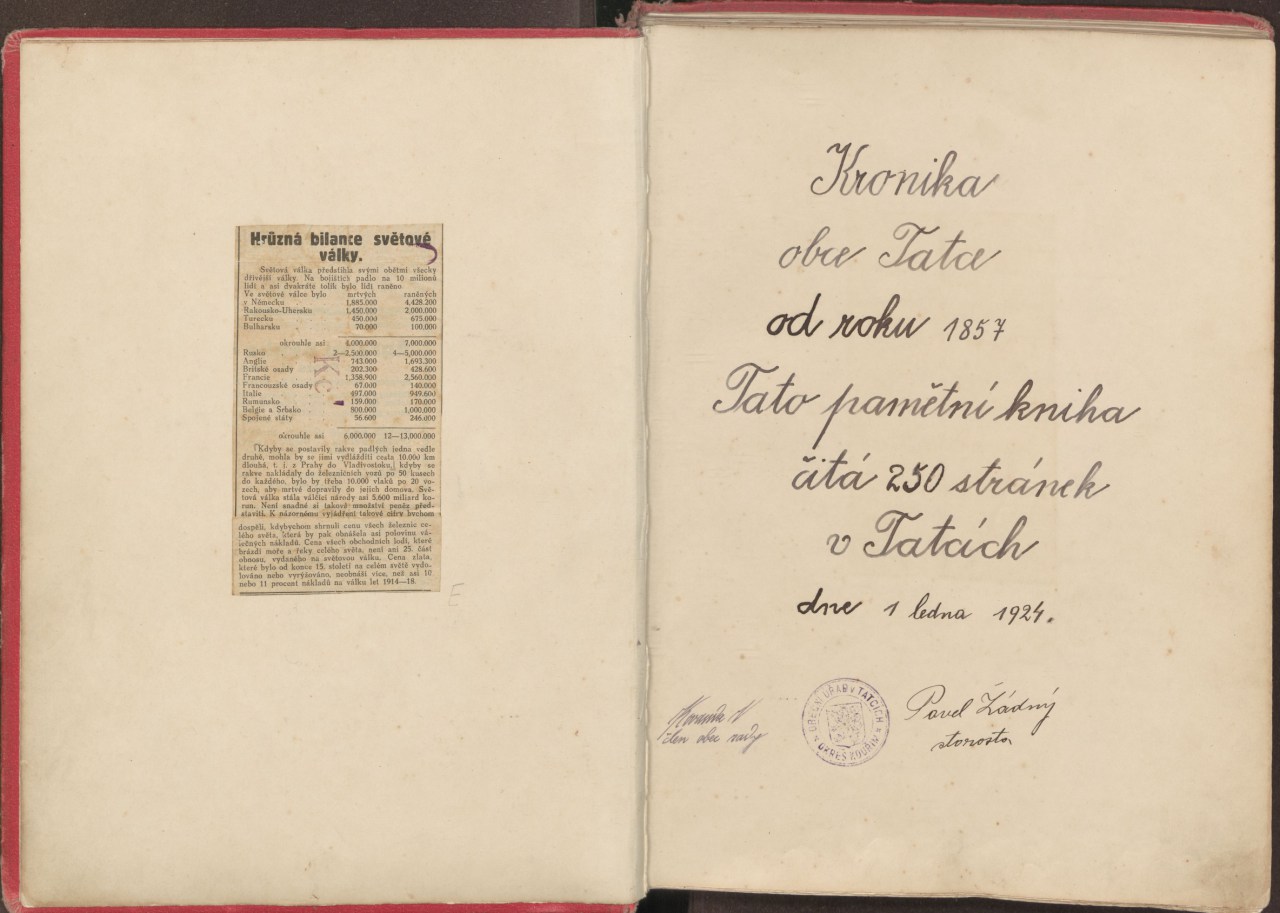 Hrůzná bilance světové
války.
Světová válka předstihla svými obětmi všecky
dřívější války. Na bojištích padlo na 10 milionů
lidí a asi dvakráte tolik bylo lidí raněno.
Ve světové válce bylo mrtvých raněných
v Německu 1,885.000 4,428.200
Rakousko-Uhersku 1,450.000 2,000.000
Turecku 450.000 675.000
Bulharsku 70.000 100.000
okrouhle asi 4,000.000 7,000.000
Rusko 2—2,500.000 4—5,000.000
Anglie 743.000 1,693.300
Britské osady 202.300 428.600
Francie 1,358.900 2,560.000
Francouzské osady 67.000 140.000
Italie 497.000 949.600
Rumunsko 159.000 170.000
Belgie a Srbsko 800.000 1,000.000
Spojené státy 56.600 246.000
okrouhle asi 6,000.000 12—13,000.000
Kč
Kdyby se postavily rakve padlých jedna vedle
druhé, mohla by se jimi vydlážditi cesta 10.000 km
dlouhá, t. j. z Prahy do Vladivostoku, kdyby se
rakve nakládaly do železničních vozů po 50 kusech
do každého, bylo by třeba 10.000 vlaků po 20 vo-
zech, aby mrtvé dopravily do jejich domova. Svě-
tová válka stála válčící národy asi 5.600 miliard ko-
run. Není snadné si takové množství peněz před-
staviti. K názornému vyjádření takové cifry bychom
dospěli, kdybychom shrnuli cenu všech železnic ce-
lého světa, která by pak obnášela asi polovinu vá-
lečných nákladů. Cena všech obchodních lodí, které
brázdí moře a řeky celého světa, není ani 25. část
obnosu, vydaného na světovou válku. Cena zlata,
které bylo od konce 15. století na celém světě vydo-
lováno nebo vyrýžováno, neobnáší více, než asi 10
nebo 11 procent nákladů na válku let 1914—18.
E
Kronika
obce Tatce
od roku 1857
Tato pamětní kniha
čítá 250 stránek
v Tatcích
dne 1 ledna 1924.
člen obec rady
OBECNÍ ÚŘAD v TATCÍCH
OKRES KOUŘIM
Pavel Žádný
starosta